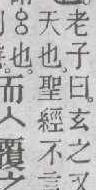 老子曰。玄之又
天也。聖經不言
也。而人覆之